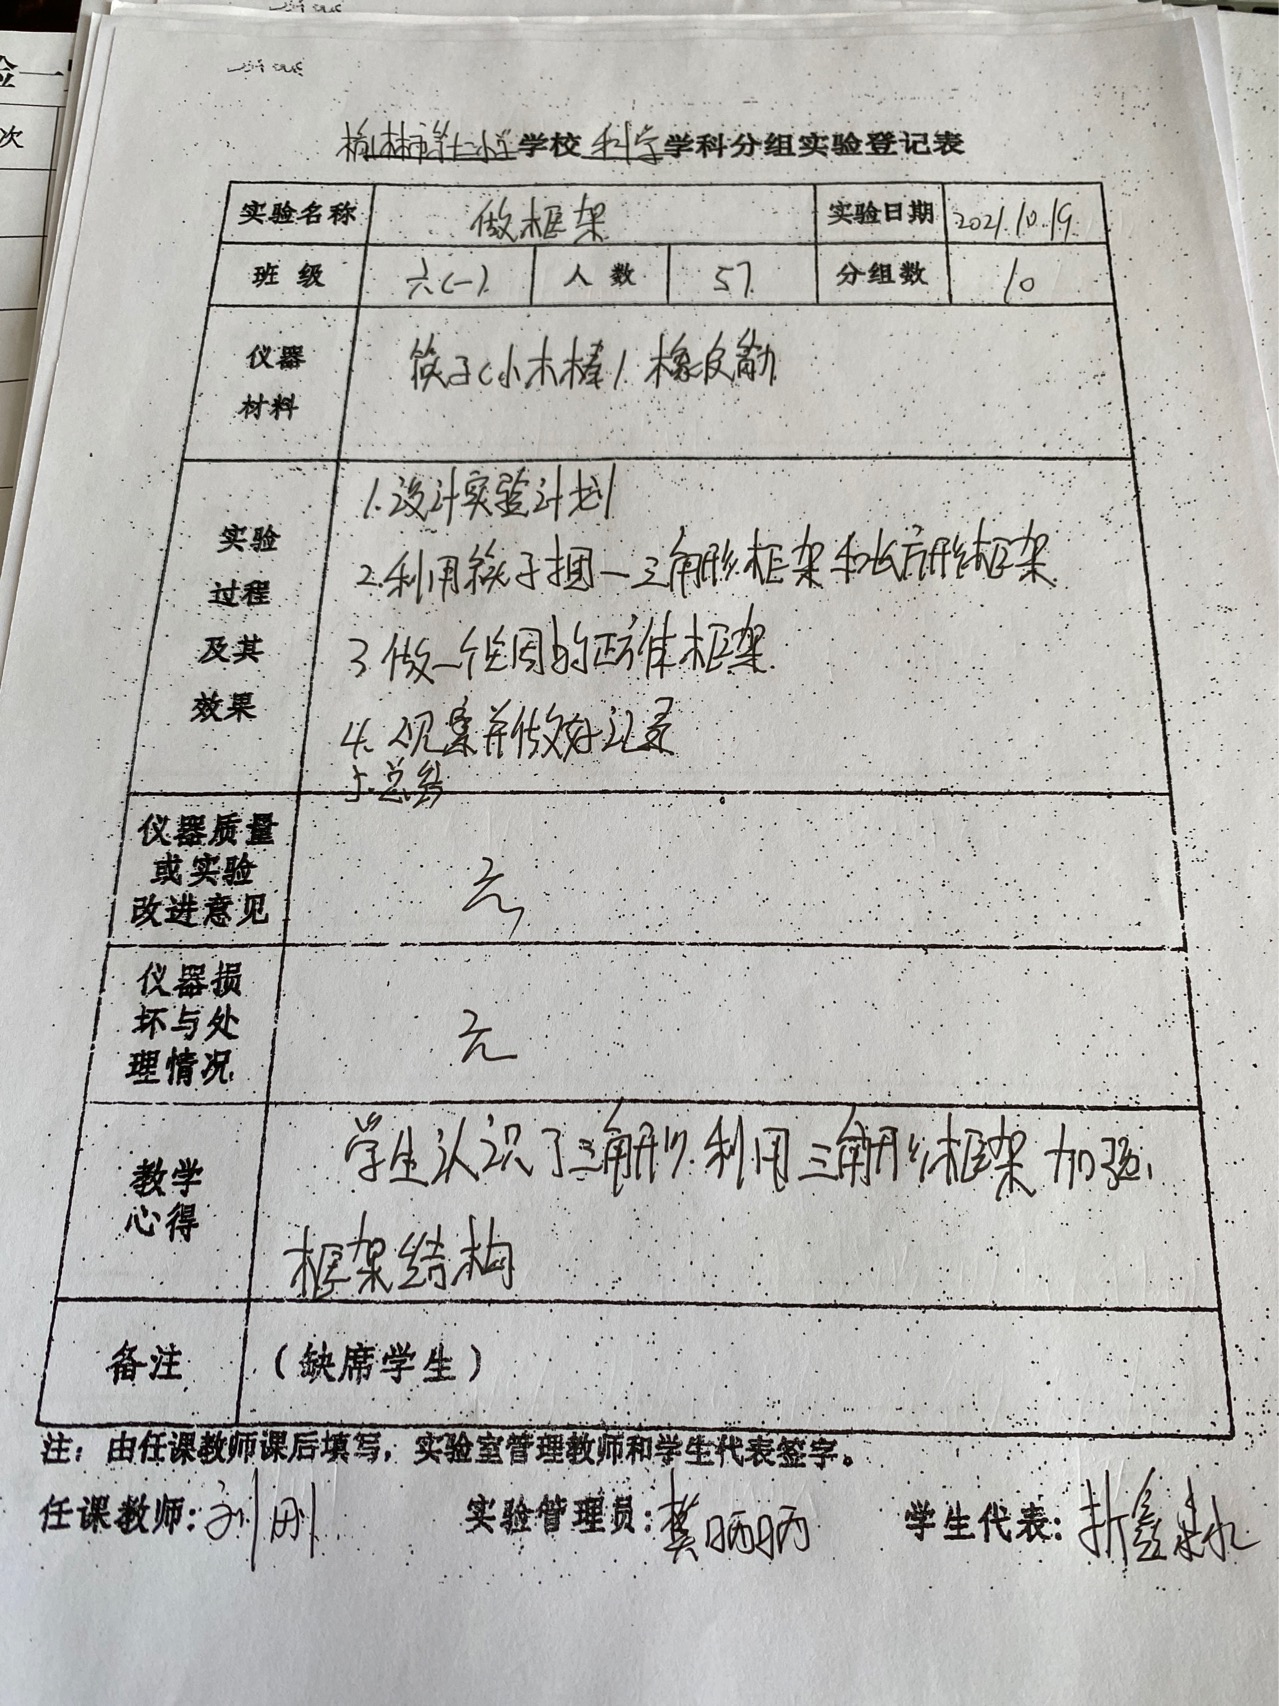 验一
次
榆林市第十二小学学校 科学学科分组实验登记表
实验名称 做框架 实验日期 2021.10.19.
班 级 六(一) 人 数 57 分组数 10
仪器材料 筷子(小木棒). 橡皮筋
实验过程及其效果
1.设计实验计划
2.利用筷子捆一三角形框架和长方形框架.
3.做一个坚固的正方体框架.
4.观察并做好记录
5.总结
仪器质量或实验改进意见 无
仪器损坏与处理情况 无
教学心得 学生认识了三角形.利用三角形框架加强
框架结构
备注 (缺席学生)
注：由任课教师课后填写，实验室管理教师和学生代表签字。
任课教师: 刘刚 实验管理员: 樊晒晒 学生代表: